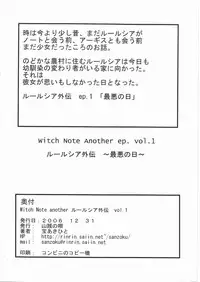 時は今より少し昔、まだルールシアが
ノートと会う前、アーギスとも会う前
まだ少女だったころのお話。
のどかな農村に住むルールシアは今日も
幼馴染の変わり者がいる家に向かった。
それは
彼女が思いもしなかった日となった。
ルールシア外伝 ep.1 「最悪の日」
Witch Note Another ep. vol.1
ルールシア外伝 ~最悪の日~
奥付
Witch Note another ルールシア外伝 vol 1
発行日:2006 12 31
発行 :山賊の樹
著者 :宝あきひと
HP :http://rinrin.saiin.net/~sanzoku/
mail :sanzoku@rinrin.saiin.net
印刷 :コンビニのコピー機